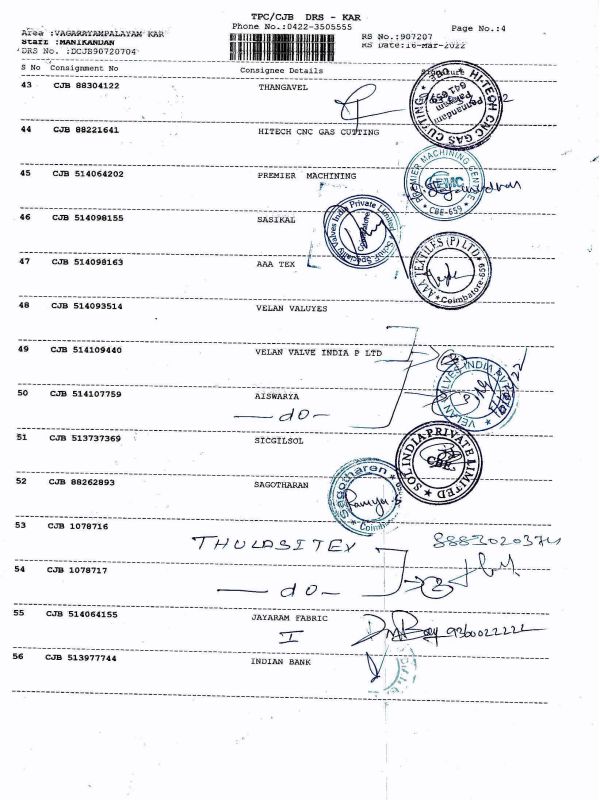 TPC/CJB DRS - KAR
Phone No.:0422-3505555
Page No.:4
Area :VAGARAYAMPALAYAM KAR
Staff :MANIKANDAN
DRS No. :DCJB90720704
RS No.:907207
RS Date:16-Mar-2022
S No Consignment No Consignee Details Signature
43 CJB 88304122 THANGAVEL
HI-TECH CNC GAS CUTTING
44 CJB 88221641 HITECH CNC GAS CUTTING
45 CJB 514064202 PREMIER MACHINING
PREMIER MACHINING CENTRE
PMC
CBE-659
46 CJB 514098155 SASIKAL
Coimbatore
47 CJB 514098163 AAA TEX
AAA TEXTILES (P) LTD
Coimbatore-659
48 CJB 514093514 VELAN VALUYES
49 CJB 514109440 VELAN VALVE INDIA P LTD
VELAN VALVES INDIA PVT
50 CJB 514107759 AISWARYA
— do —
51 CJB 513737369 SICGILSOL
SOL INDIA PRIVATE LIMITED
CBE
52 CJB 88262893 SAGOTHARAN
Sagotharan
53 CJB 1078716
THULASITEX
54 CJB 1078717
— do —
2
55 CJB 514064155 JAYARAM FABRIC
I
9360022222
56 CJB 513977744 INDIAN BANK